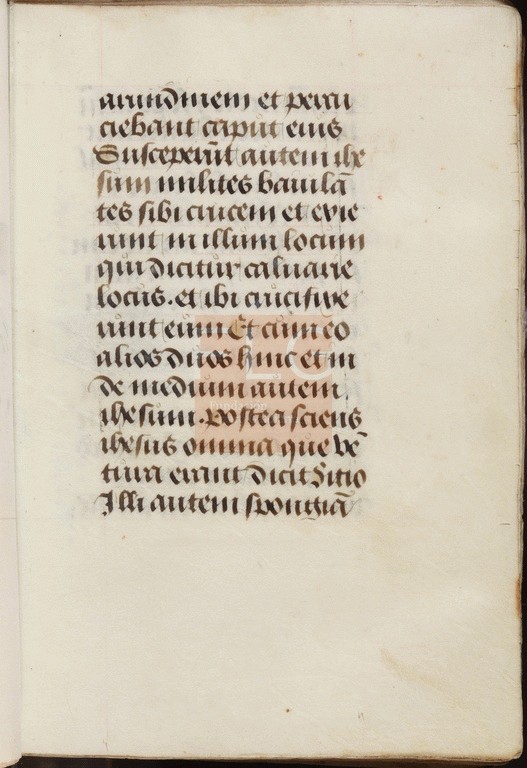 arundinem et percu
ciebant caput eius
Susceperūt autem ihe
sum milites baiulā
tes sibi crucem et exie
runt in illum locum
qui dicitur caluarie
locus. et ibi crucifixe
runt eum Et cum eo
alios duos hinc et in
de medium autem
ihesum. postea sciens
ihesus omnia que vē
tura erant dicit Sitio
Illi autem spongiā